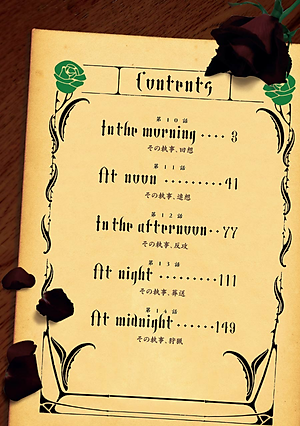 Contents
第10話
In the morning ···· 3
その執事、回想
第11話
At noon ········· 41
その執事、逢想
第12話
In the afternoon ·· 77
その執事、反攻
第13話
At night ········· 111
その執事、葬送
第14話
At midnight ······ 149
その執事、狩猟